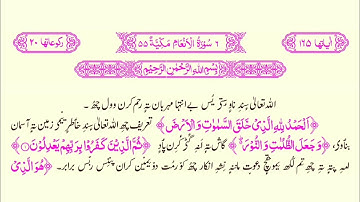 آیاتها ١٦٥ ٦ سُوْرَةُ الْاَنْعَام مَکِّیَّةٌ ٥٥ رکوعاتها ٢٠
بِسْمِ اللّٰهِ الرَّحْمٰنِ الرَّحِیْمِ
اللہ تعالیٰ سٕندِ ناوٕ ستۍ یُس بے انتہا مہربان تہٕ رحم کرن وول چھُ۔
﴿اَلْحَمْدُ لِلّٰهِ الَّذِیْ خَلَقَ السَّمٰوٰتِ وَالْاَرْضَ﴾ تعریف چھِ اللہ تعالیٰ سٕندِ خٲطرٕ یٔمۍ زمین تہٕ آسمان
بناوۍ، ﴿وَجَعَلَ الظُّلُمٰتِ وَالنُّوْرَ﴾ گاش تہٕ انہِ گوٚٹ کرُن پٲدٕ ﴿ثُمَّ الَّذِیْنَ کَفَرُوْا بِرَبِّهِمْ یَعْدِلُوْنَ﴾
لہٰذا پتہٕ تہِ چھِ تم لکھ یموٚ دعوت ماننہٕ نِشہِ انکار چھُ کوٚرمُت دۄیمین کران پننِس ربس برابر۔ ﴿هُوَ الَّذِیْ